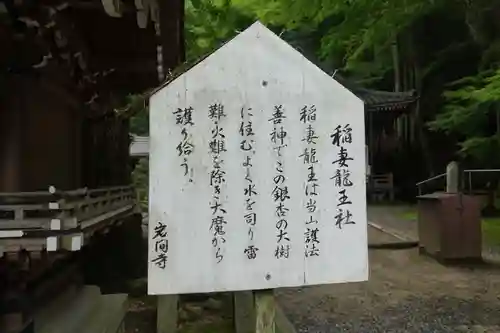 稲妻龍王社
稲妻龍王は当山護法
善神でこの銀杏の大樹
に住む。よく水を司り雷
難火難を除き大魔から
護り給う。
岩間寺